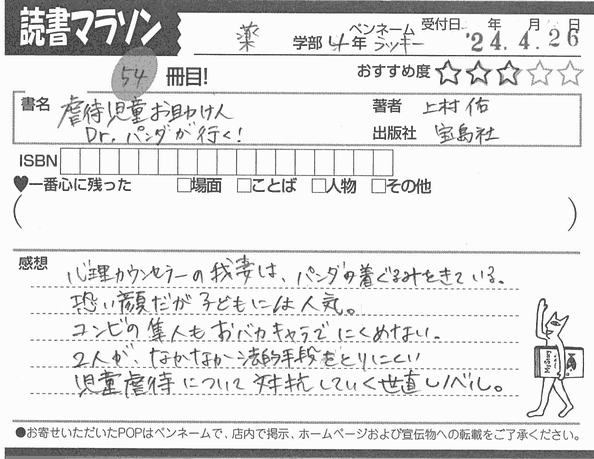 読書マラソン
薬 学部 4年 ペンネーム ラッキー 受付日 年 月 日 '24.4.26
54 冊目! おすすめ度 ☆☆☆☆☆
書名 虐待児童お助け人 著者 上村佑
Dr.パンダが行く! 出版社 宝島社
ISBN
♥一番心に残った □場面 □ことば □人物 □その他
( )
感想
心理カウンセラーの我妻は、パンダの着ぐるみをきている。
恐い顔だが子どもには人気。
コンビの隼人もおバカキャラでにくめない。
2人が、なかなか法的手段をとりにくい
児童虐待について対抗していく世直しノベル。
●お寄せいただいたPOPはペンネームで、店内で掲示、ホームページおよび宣伝物への転載をご了承ください。